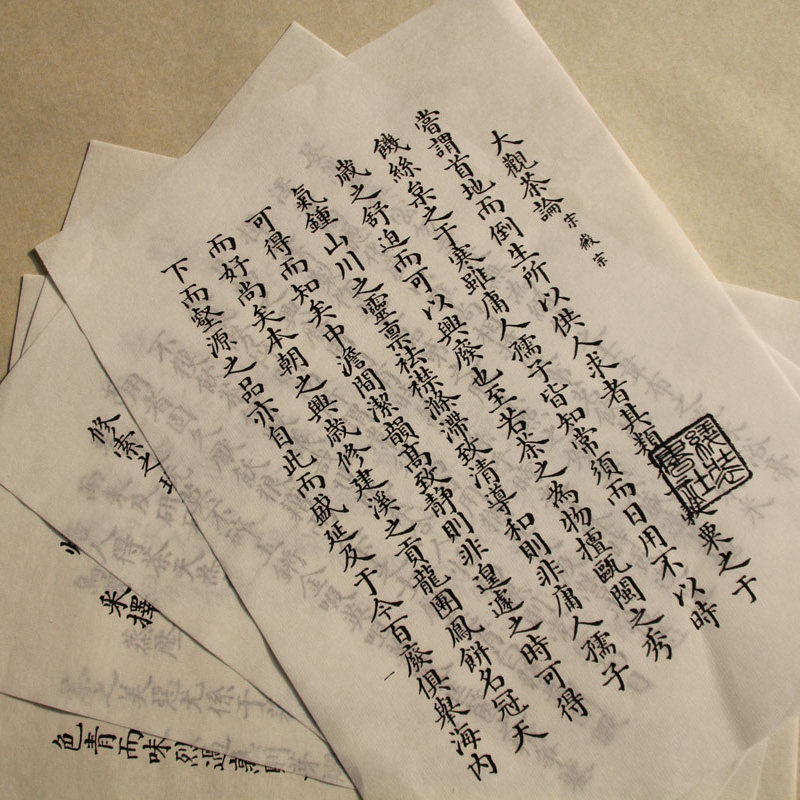 大觀茶論 宋徽宗
嘗謂首地而倒生所以供人求者其類粟之于
饑絲枲之于寒雖庸人孺子皆知常須而日用不以時
歲之舒迫而可以興廢也至若茶之為物擅甌閩之秀
氣鍾山川之靈禀祛襟滌滯致清導和則非庸人孺子
可得而知矣中澹間潔韻高致靜則非遑遽之時可得
而好尚矣本朝之興歲修建溪之貢龍團鳳餅名冠天
下而壑源之品亦自此而盛延及于今百廢俱舉海内
綫裝書社
修素之
采擇
色青而味烈